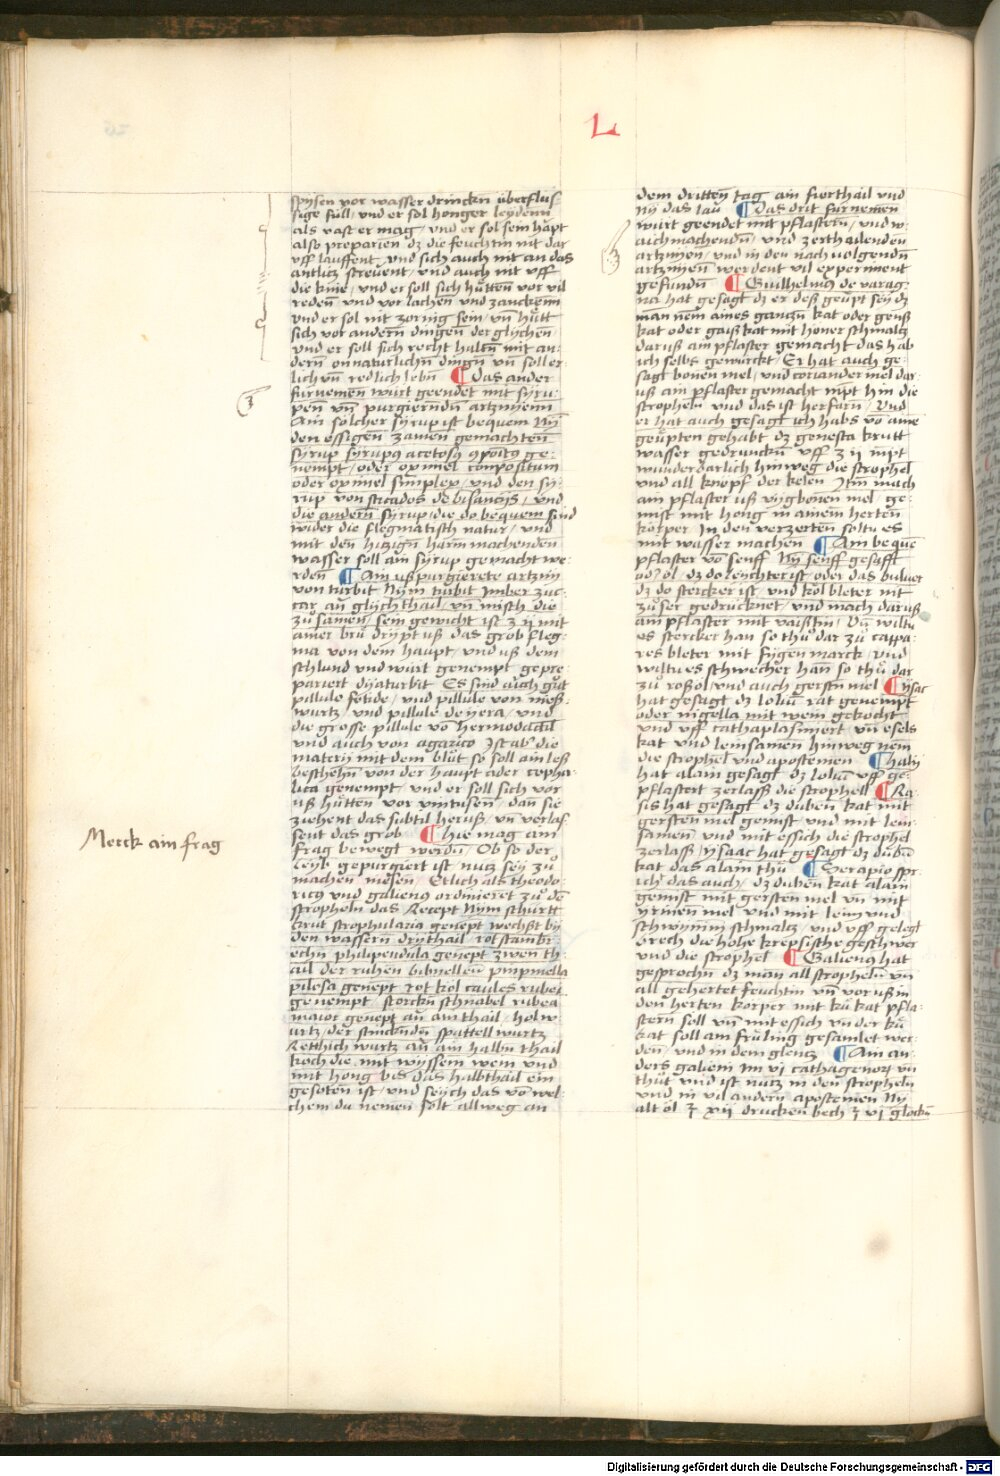 L
spysen vor wasser drincken überflüs
sige füll, vnd er sol honger leydenn
als vast er mag, vnd er sol sein hapt
also preparien dz die feuchtin nit dar
vff lauffent, vnd sich auch nit an das
antlicz streuent, vnd auch nit vff
die knie, vnd er soll sich hütten vor vil
reden vnd vor lachen vnd zanckenn
vnd er sol nit zornig sein, vnd hütt
sich vor andern dingen der glychen
vnd er soll sich recht halten mit an-
dern onnaturlichn dingn vn soll er
lich vn redlich lebn ¶ Das ander
furnemen würt geendet mit syru-
pen vn purgierendn artznyenn
Ain solcher syrup ist bequem Ny
den essigen zamen gemachten
syrup syrupus acetosus compositus ge-
nempt, oder oximel compositum
oder oximel simplex, vnd den sy-
rup von sticados de bisancijs, vnd
die andern syrup, die do bequem sind
wider die flegmatisch natur, vnd
mit den hitzign harn machenden
wasser soll ain syrup gemacht we-
rden ¶ Ain vßpurgierete artzny
von turbit Nym turbit Imber zuc-
car an glych thail, vn misch die
zusamen, sein gewicht ist ʒ ij mit
ainer brü drypt uß das grob fleg-
ma von dem haupt, vnd uß dem
schlund vnd würt genempt gepre-
pariert dyaturbit Es sind auch gut
pillule fetide, vnd pillule von
wurtz, vnd pillule de yera, vnd
die grosse pillule vo hermodactil
vnd auch von agarico Ist ab die
matery mit dem blüt so soll ain leß
beschehn von der haupt ader cepha-
lica genempt, vnd er soll sich vor
uß hütten vor ventusen, dan sie
ziehent das subtil heruß, vn verlas-
sent das grob ¶ Hie mag ain
frag bewegt werdn Ob so der
leyb gepurgiert ist, nutz sey zu
machen niesen, Etlich als theodo-
ricus vnd galienus ordinieret zu de
stropheln das Recept Nym schurtt
krut strophularia genept wechßt by
den wassern drythail, rot stainbr
echn philipendula genept zwen th-
ail der ruhen bibnellen pinpinella
pilosa genept, rot kol caules rubei
genempt, storckn schnabel rubea
maior genept an ain thail, holw-
urtz, der stinckndn spattell wurtz
Retthich wurtz an ain halbn thail
koch die mit wyssem wein vnd
mit hong bis das halbthail ein
gesoten ist, vnd seych das vo wel-
chem du nemen solt allweg an
Merck ain frag
dem dritten tag ain fierthail vnd
ny das lau ¶ Das drit furnemen
würt geendet mit pflastern, vnd w-
aichmachendn, vnd zerthailenden
artznyen, vnd in den nachvolgendn
artznyenn werdent vil experiment
gefundn ¶ Guilhelmus de varag-
na hat gesagt dz er deß geüpt sey dz
man nem aines gantzn kat oder genß
kat oder gaiß kat mit honer schmaltz
daruß ain pflaster gemacht das hab
ich selbs gewürckt, Er hat auch ge-
sagt bonen mel, vnd coriander mel dar-
uß ain pflaster gemacht nimpt hin die
stropheln vnd das ist herfarn, Vnd
er hat auch gesagt ich habs vo aine
geüpten gehabt dz genesta krutt
wasser gedrunckn vff ʒ ij nimpt
wunderbarlich hinweg die strophel
vnd all knopf der kelen Itm mach
ain pflaster uß vygbonen mel ge-
mist mit hong in ainem herten
körper In den verzerten soltu es
mit wasser machen ¶ Ain beque
pflaster vo senff Ny senff gesafft
od' öl, dz do leychter ist, oder das buluer
dz do stercker ist, vnd kolbleter nit
zuser gedrücknet, vnd mach daruß
ain pflaster mit vaißtin, Vn wiltu
es stercker han so thu dar zu cappa-
res bleter mit fygen marck, vnd
wiltu es schwecher han so thu dar
zu roßöl, vnd auch gersten mel ¶ ysac
hat gesagt dz loliu rat genempt
oder nigella mit wein gekocht
vnd vff cathaplasmiert vn esels
kat vnd leinsamen hinweg nem
die strophel vnd apostemen ¶ haly
hat alain gesagt dz loliu vff ge-
pflastert zerlasß die strophell ¶ Ra-
sis hat gesagt dz duben kat mit
gersten mel gemist vnd mit lein-
samen vnd mit essich die strophel
zerlasß, ysaac hat gesagt dz dubn
kat das alain thu ¶ Serapio spr-
ich das auch, dz duben kat alain
gemist mit gersten mel vn mit
yrmen mel vnd mit leim vnd
schwynnin schmaltz, vnd vff gelegt
brech die hohe krepsische geschwer
vnd die strophel ¶ Galienus hat
gesprochn dz man all stropheln vn
all gehertet feuchtin vn vor uß in
den herten körper mit kü kat pfla-
stern soll vn mit essich vn der kü
kat soll am früling gesamlet wer-
den, vnd in dem glentz ¶ Ain an-
ders galieni im vi cathagenoz vn
thut vnd ist nutz in den stropheln
vnd in vil andern apostemen Ny
alt öl ʒ xij drucken bech ʒ vi glockn
Digitalisierung gefördert durch die Deutsche Forschungsgemeinschaft - DFG